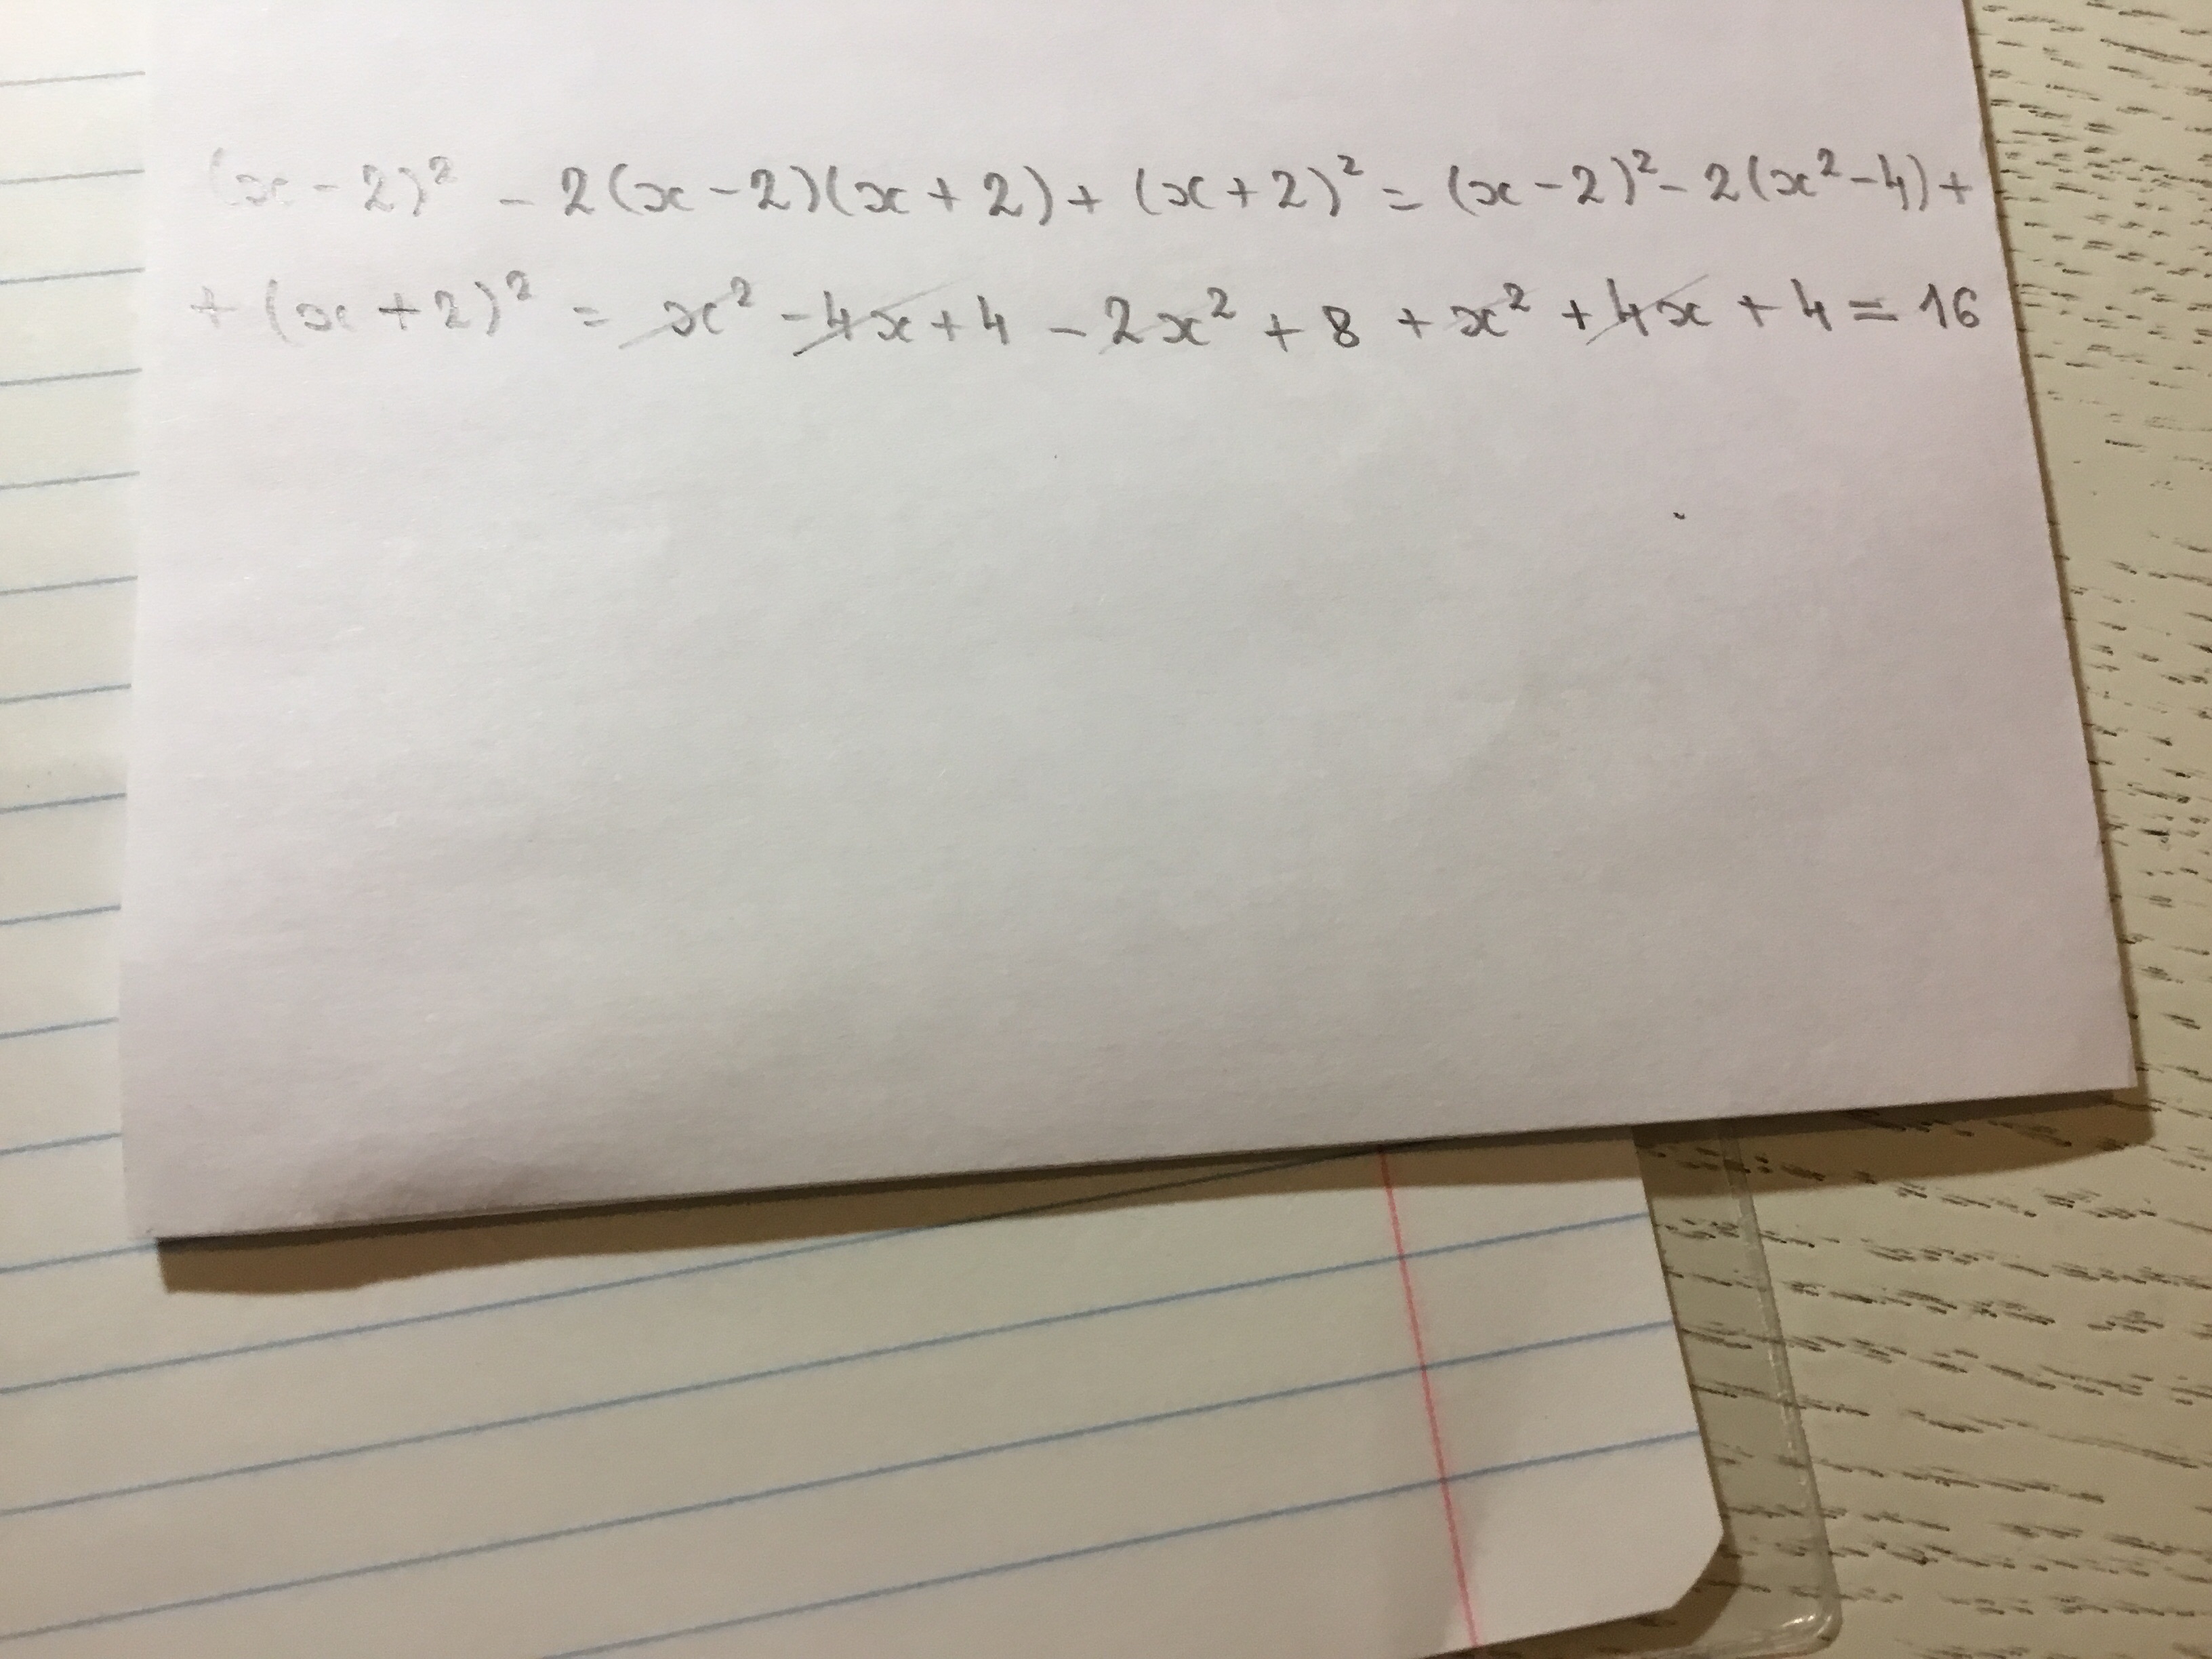 (x-2)² - 2(x-2)(x+2) + (x+2)² = (x-2)² - 2(x²-4) +
+ (x+2)² = x² - 4x + 4 - 2x² + 8 + x² + 4x + 4 = 16